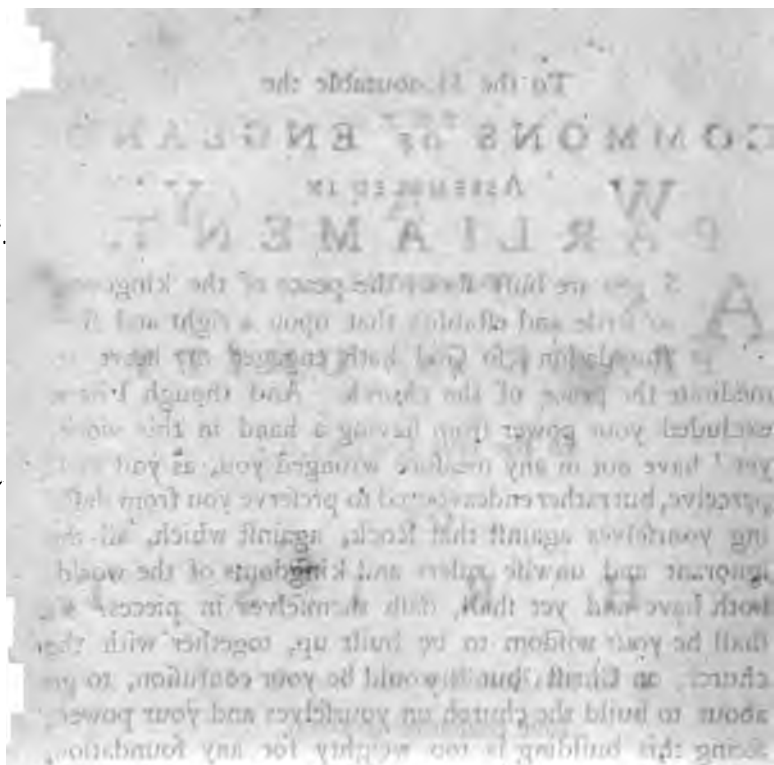 To the Honourable the
COMMONS OF ENGLAND
ASSEMBLED IN
PARLIAMENT.
AS you are the peace of the kingdom
so settle and establish that upon a right and
foundation; so God hath engaged my heart to
meditate the peace of the church. And though I have
excluded your power from having a hand in this work,
yet I have not in any measure wronged you, as you
perceive, but rather endeavoured to preserve you from dash-
ing yourselves against that Rock, against which, all the
ignorant and unwise rulers and kingdoms of the world
both have and yet shall, dash themselves in pieces.
shall be your wisdom to be built up, together with the
church, on Christ; but it would be your confusion, to go
about to build the church on yourselves and your power,
seeing this building is too weighty for any foundation,